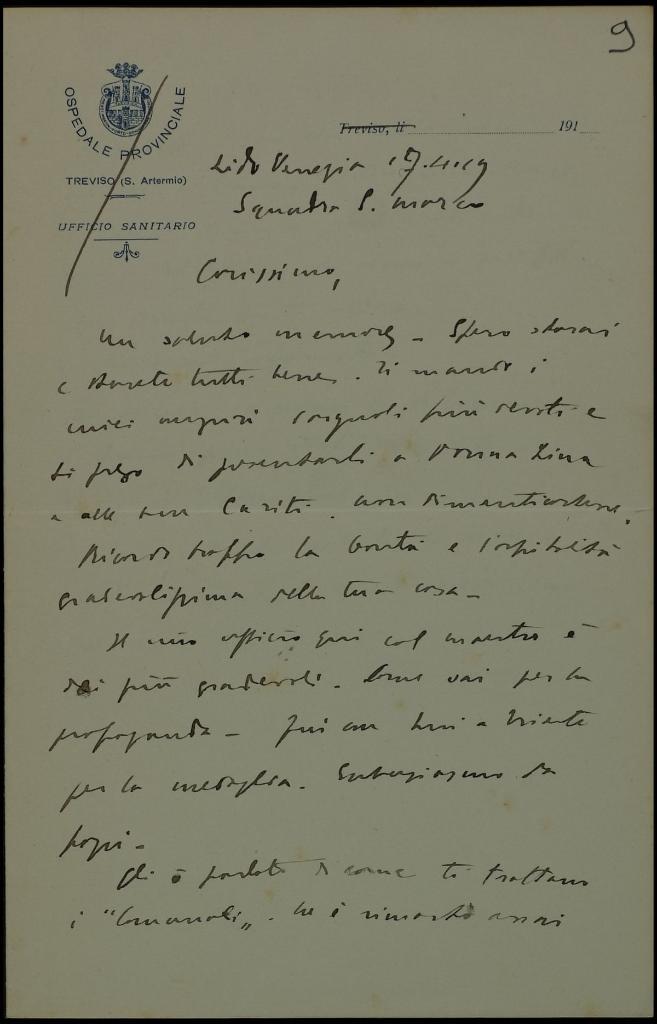 9
OSPEDALE PROVINCIALE
TREVISO (S. Artermio)
UFFICIO SANITARIO
Treviso, li 191
Lido Venezia 17.4.19
Squadra S. Marco
Carissimo,
Un saluto memore - Spero starai
e starete tutti bene. Ti mando i
miei auguri pasquali più devoti e
ti prego di presentarli a Donna Lina
e alle tue Cariti. non dimenticartene.
Ricordo troppo la bontà e l'ospitalità
gradevolissima della tua casa -
Il mio ufficio qui col maestro è
dei più gradevoli. Come vai per la
propaganda - Fui con lui a Trieste
per la medaglia. Entusiasmo da
pazzi -
Gli ò parlato di come ti trattano
i "Comunali". Ne è rimasto assai